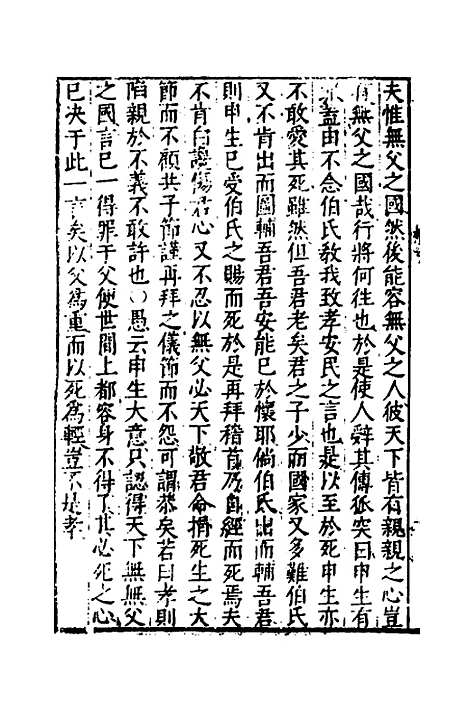 夫惟無父之國然後能容無父之人彼天下皆有親親之心豈
有無父之國哉行將何往也於是使人辭其傅狐突曰申生有
罪蓋由不念伯氏教我致孝安民之言也是以至於死申生亦
不敢愛其死雖然但吾君老矣君之子少而國家又多難伯氏
又不肯出而圖輔吾君吾安能已於懷耶倘伯氏出而輔吾君
則申生已受伯氏之賜而死於是再拜稽首乃自經而死焉夫
不肯白讒傷君心又不忍以無父必天下敬君命捐死生之大
節而不顧共子節謹再拜之儀節而不怨可謂恭矣若曰孝則
陷親於不義不敢許也○愚云申生大意只認得天下無無父
之國言已一得罪于父便世間上都容身不得了其必死之心
已决于此一言矣以父爲重而以死爲輕豈不是孝